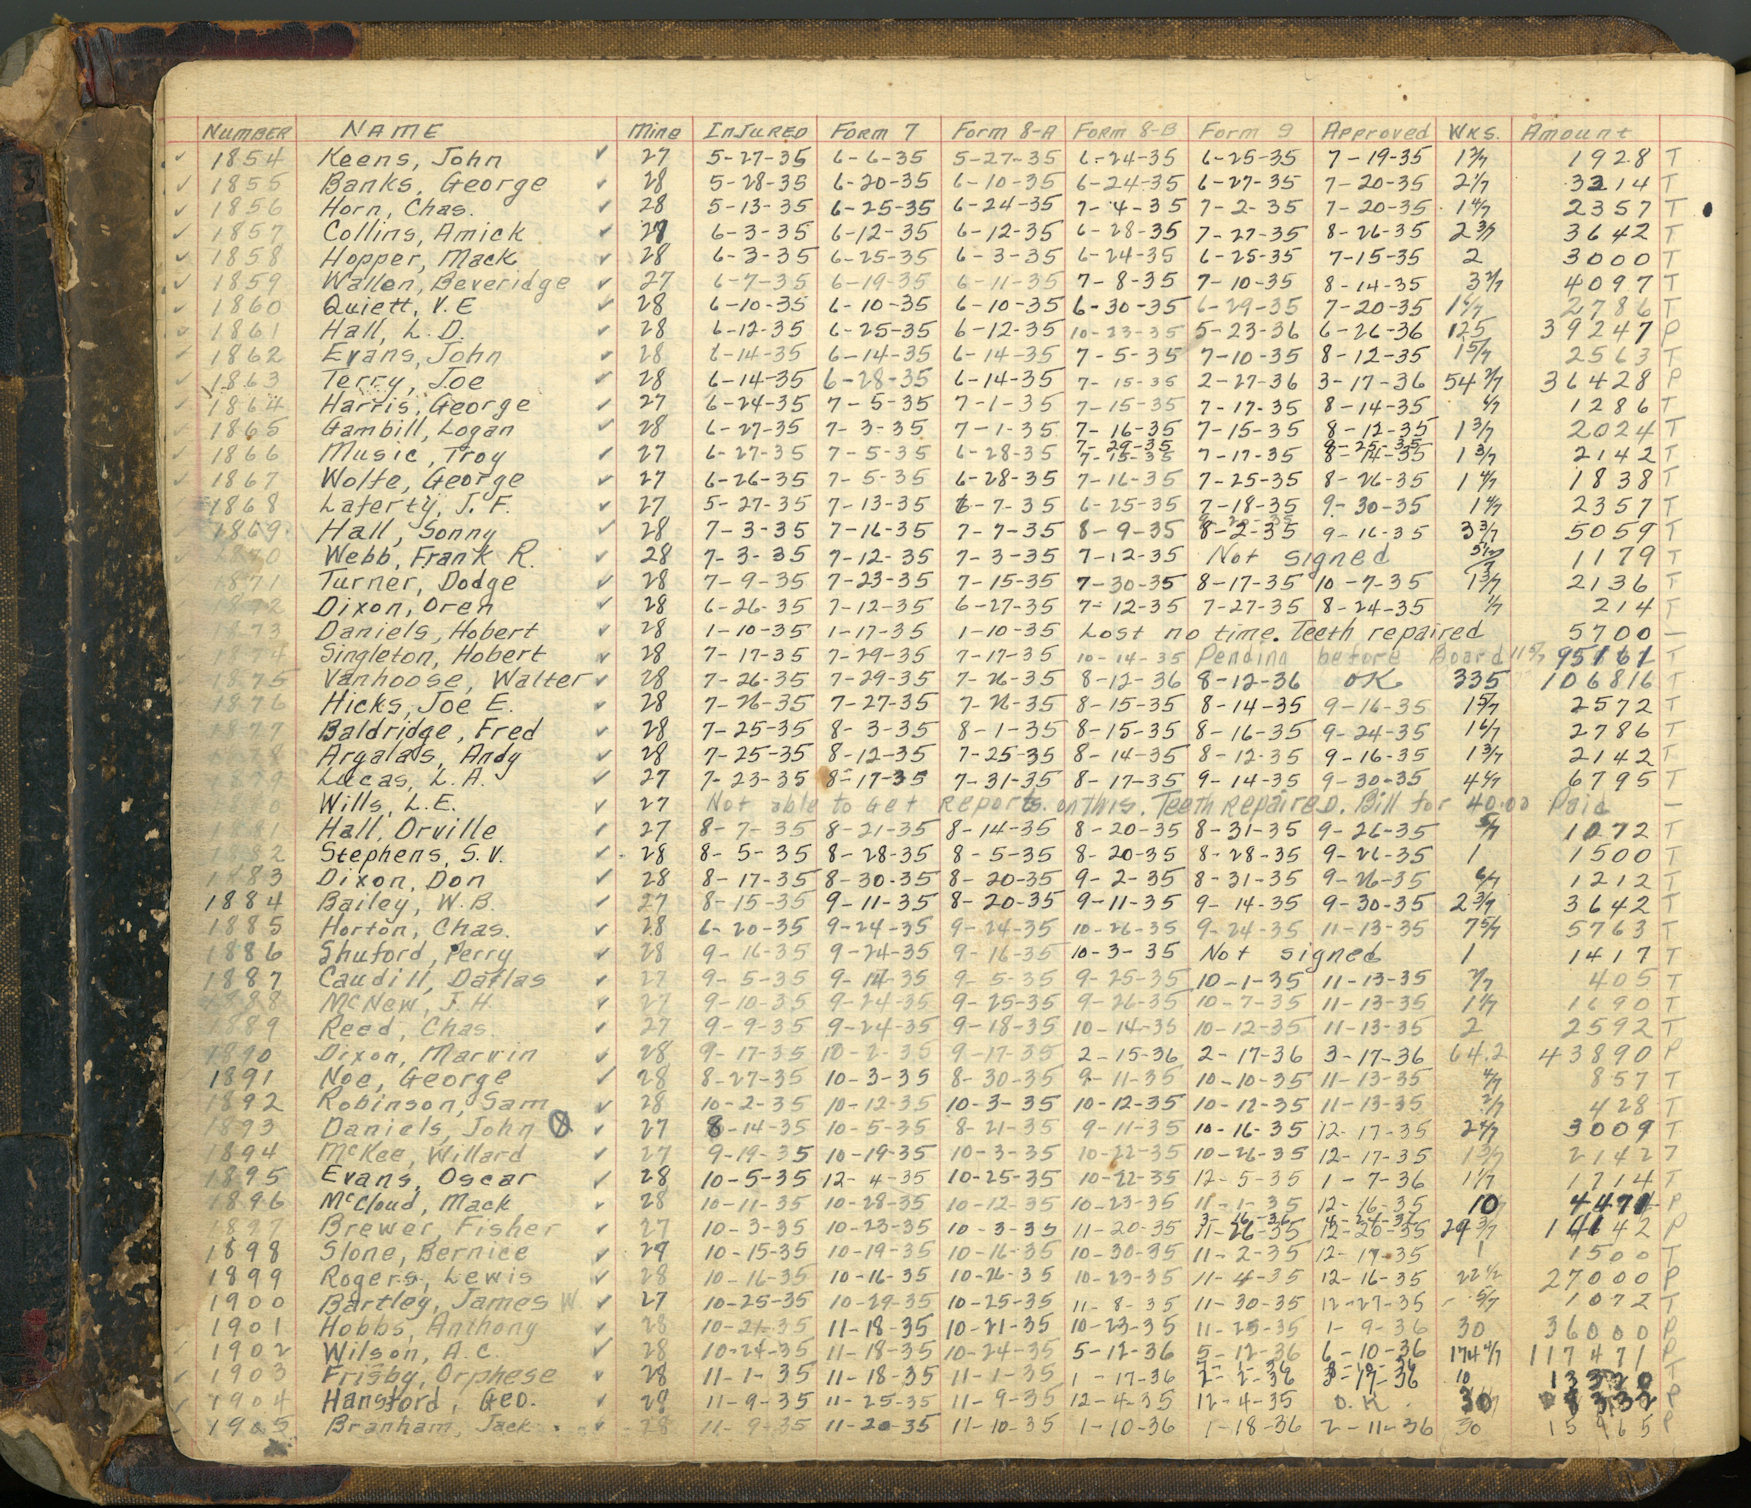 NUMBER NAME Mine INJURED FORM 7 Form 8-A FORM 8-B Form 9 Approved WKS. Amount
1854 Keens, John 27 5-27-35 6-6-35 5-27-35 6-24-35 6-25-35 7-19-35 1 2/7 1928 T
1855 Banks, George 28 5-28-35 6-20-35 6-10-35 6-24-35 6-27-35 7-20-35 2 1/7 3214 T
1856 Horn, Chas. 28 5-13-35 6-25-35 6-24-35 7-4-35 7-2-35 7-20-35 1 4/7 2357 T
1857 Collins, Amick 6-3-35 6-12-35 6-12-35 6-28-35 7-27-35 8-26-35 2 3/7 3642 T
1858 Hopper, Mack 28 6-3-35 6-25-35 6-3-35 6-24-35 6-25-35 7-15-35 2 3000 T
1859 Wallen, Beveridge 27 6-7-35 6-19-35 6-11-35 7-8-35 7-10-35 8-14-35 3 2/7 4097 T
1860 Quiett, V.E 28 6-10-35 6-10-35 6-10-35 6-30-35 6-29-35 7-20-35 1 6/7 2786 T
1861 Hall, L.D. 28 6-12-35 6-25-35 6-12-35 10-23-35 5-23-36 6-26-36 125 39247 P
1862 Evans, John 28 6-14-35 6-14-35 6-14-35 7-5-35 7-10-35 8-12-35 1 5/7 2563 T
1863 Terry, Joe 28 6-14-35 6-28-35 6-14-35 7-15-35 2-27-36 3-17-36 54 2/7 36428 P
1864 Harris, George 27 6-24-35 7-5-35 7-1-35 7-15-35 7-17-35 8-14-35 6/7 1286 T
1865 Gambill, Logan 28 6-27-35 7-3-35 7-1-35 7-16-35 7-15-35 8-12-35 1 3/7 2024 T
7-29-35 8-25-35
1866 Music, Troy 27 6-27-35 7-5-35 6-28-35 7-15-35 7-17-35 8-14-35 1 3/7 2142 T
1867 Wolfe, George 27 6-26-35 7-5-35 6-28-35 7-16-35 7-25-35 8-26-35 1 4/7 1838 T
1868 Laferty, J.F. 27 5-27-35 7-13-35 6-7-35 6-25-35 7-18-35 9-30-35 1 4/7 2357 T
1869 Hall, Sonny 28 7-3-35 7-16-35 7-7-35 8-9-35 8-2-35 9-16-35 3 3/7 5059 T
1870 Webb, Frank R. 28 7-3-35 7-12-35 7-3-35 7-12-35 Not signed 1179 T
1871 Turner, Dodge 28 7-9-35 7-23-35 7-15-35 7-30-35 8-17-35 10-7-35 1 3/7 2136 T
1872 Dixon, Oren 28 6-26-35 7-12-35 6-27-35 7-12-35 7-27-35 8-24-35 1/7 214 T
1873 Daniels, Hobert 28 1-10-35 1-17-35 1-10-35 Lost no time. Teeth repaired 5700 —
1874 Singleton, Hobert 28 7-17-35 7-29-35 7-17-35 10-14-35 Pending before Board 95161 T
1875 Vanhoose, Walter 28 7-26-35 7-29-35 7-26-35 8-12-36 8-12-36 OK 335 106816 T
1876 Hicks, Joe E. 28 7-26-35 7-27-35 7-26-35 8-15-35 8-14-35 9-16-35 1 5/7 2572 T
1877 Baldridge, Fred 28 7-25-35 8-3-35 8-1-35 8-15-35 8-16-35 9-24-35 1 6/7 2786 T
1878 Argalas, Andy 28 7-25-35 8-12-35 7-25-35 8-14-35 8-12-35 9-16-35 1 3/7 2142 T
1879 Lucas, L.A. 27 7-23-35 8-17-35 7-31-35 8-17-35 9-14-35 9-30-35 4 6/7 6795 T
Wills, L.E. 27 Not able to get reports on this. Teeth Repaired. Bill for 40.00 Paid —
1881 Hall, Orville 27 8-7-35 8-21-35 8-14-35 8-20-35 8-31-35 9-26-35 5/7 1072 T
1882 Stephens, S.V. 28 8-5-35 8-28-35 8-5-35 8-20-35 8-28-35 9-26-35 1 1500 T
1883 Dixon, Don 28 8-17-35 8-30-35 8-20-35 9-2-35 8-31-35 9-26-35 6/7 1212 T
1884 Bailey, W.B. 27 8-15-35 9-11-35 8-20-35 9-11-35 9-14-35 9-30-35 2 3/7 3642 T
1885 Horton, Chas. 28 6-20-35 9-24-35 9-24-35 10-26-35 9-24-35 11-13-35 7 5/7 5763 T
1886 Shuford, Perry 28 9-16-35 9-24-35 9-16-35 10-3-35 Not signed 1 1417 T
1887 Caudill, Dallas 27 9-5-35 9-14-35 9-5-35 9-25-35 10-1-35 11-13-35 2/7 405 T
1888 McNew, J.H. 27 9-10-35 9-24-35 9-25-35 9-26-35 10-7-35 11-13-35 1690 T
1889 Reed, Chas. 27 9-9-35 9-24-35 9-18-35 10-14-35 10-12-35 11-13-35 2 2592 T
1890 Dixon, Marvin 28 9-17-35 10-2-35 9-17-35 2-15-36 2-17-36 3-17-36 64.2 43890 P
1891 Noe, George 28 8-27-35 10-3-35 8-30-35 9-11-35 10-10-35 11-13-35 4/7 857 T
1892 Robinson, Sam 28 10-2-35 10-12-35 10-3-35 10-12-35 10-12-35 11-13-35 2/7 428 T
1893 Daniels, John 27 8-14-35 10-5-35 8-21-35 9-11-35 10-16-35 12-17-35 3009 T
1894 McKee, Willard 27 9-19-35 10-19-35 10-3-35 10-22-35 10-26-35 12-17-35 1 3/7 2142 T
1895 Evans, Oscar 28 10-5-35 12-4-35 10-25-35 10-22-35 12-5-35 1-7-36 1 1/7 1714 T
1896 McCloud, Mack 28 10-11-35 10-28-35 10-12-35 10-23-35 11-1-35 12-16-35 10 4471 P
1897 Brewer, Fisher 27 10-3-35 10-23-35 10-3-35 11-20-35 11-26-35 12-20-35 29 3/7 14142 P
1898 Slone, Bernice 10-15-35 10-19-35 10-16-35 10-30-35 11-2-35 12-17-35 1 1500 T
1899 Rogers, Lewis 28 10-16-35 10-16-35 10-26-35 10-23-35 11-4-35 12-16-35 22 1/2 27000 P
1900 Bartley, James W 27 10-25-35 10-29-35 10-25-35 11-8-35 11-30-35 12-27-35 5/7 1072 T
1901 Hobbs, Anthony 28 10-21-35 11-18-35 10-21-35 10-23-35 11-25-35 1-9-36 30 36000 P
1902 Wilson, A.C. 28 10-24-35 11-18-35 10-24-35 5-12-36 5-12-36 6-10-36 174 4/7 117471 P
1903 Frisby, Orphese 28 11-1-35 11-18-35 11-1-35 1-17-36 2-2-36 3-17-36 10 T
1904 Hansford, Geo. 28 11-9-35 11-25-35 11-9-35 12-4-35 12-4-35 O.K. 30 P
1905 Branham, Jack 28 11-9-35 11-20-35 11-10-35 1-10-36 1-18-36 2-11-36 30 15965 P